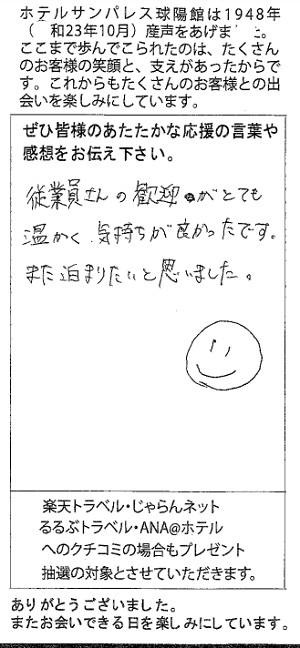 ホテルサンパレス球陽館は1948年
( 和23年10月)産声をあげま と。
ここまで歩んでこられたのは、たくさん
のお客様の笑顔と、支えがあったからで
す。これからもたくさんのお客様との出
会いを楽しみにしています。
ぜひ皆様のあたたかな応援の言葉や
感想をお伝え下さい。
従業員さんの歓迎がとても
温かく気持ちが良かったです。
また泊まりたいと思いました。
楽天トラベル・じゃらんネット
るるぶトラベル・ANA@ホテル
へのクチコミの場合もプレゼント
抽選の対象とさせていただきます。
ありがとうございました。
またお会いできる日を楽しみにしています。